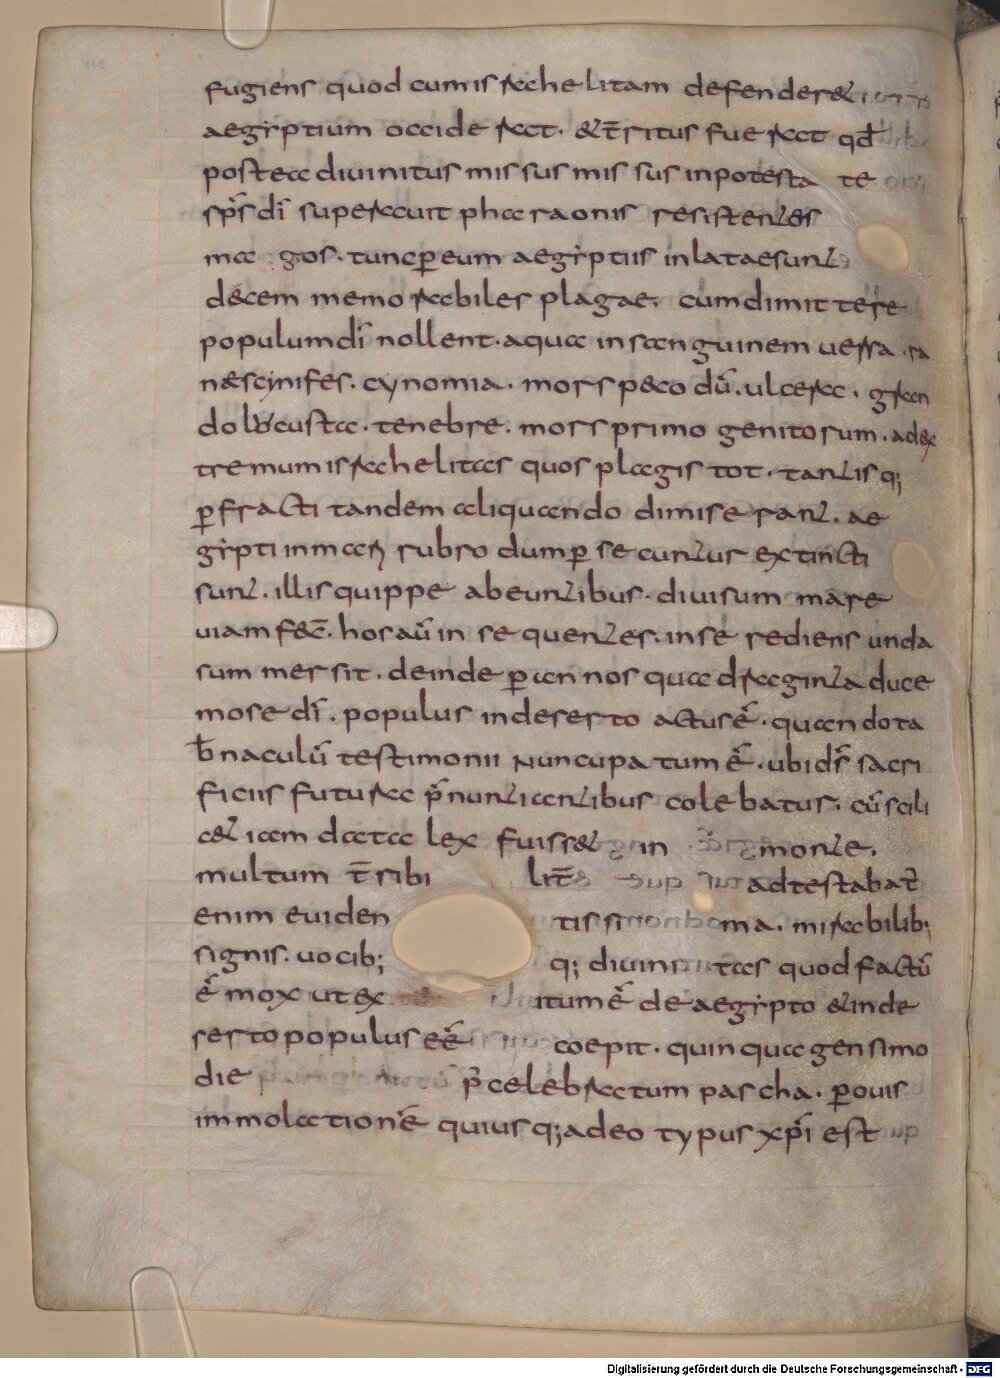 fugiens quod cum israhelitam defender&
aegyptium occiderat. & t̄ritus fuerat qd̄
postea diuinitus missus missus in potesta te
sp̄s dī superauit pharaonis resistentes
ma gos. tunc p̄ eum aegyptiis inlatae sunt
decem memorabiles plagae. cum dimittere
populum dī nollent. aqua in sanguinem uersa. ra
næ scynifes. cynomia. mors p&codū. ulcera. gran
do locusta. tenebre. mors primo genitorum. ad ex
tremum israhelitas quos plagis tot. tantisq;
p̄fracti tandem aliquando dimiserant. ae
gypti in mari rubro dum p̄secuntur extincti
sunt. illis quippe abeuntibus. diuisum mare
uiam fec̄. hos aū in sequentes. in se rediens unda
summersit. deinde p̄ annos quadraginta duce
mose dī. populus in deserto actus ē. quando ta
b̄naculū testimonii nuncupatum ē. ubi ds̄ sacri
ficiis futura p̄nuntiantibus colebatur. cū scili
c& iam data lex fuiss& in monte.
multum t̄ribi lit̄ adtestabat̄
enim euiden tissi ma. mirabilib;
signis. uocib; q; diuini tas quod factū
ē mox ut ex itum ē de aegypto & in de
serto populus eē coepit. quinquagensimo
die p̄ celebratum pascha. p̄ ouis
immolationē qui usq; adeo typus xp̄i est
Digitalisierung gefördert durch die Deutsche Forschungsgemeinschaft - DFG